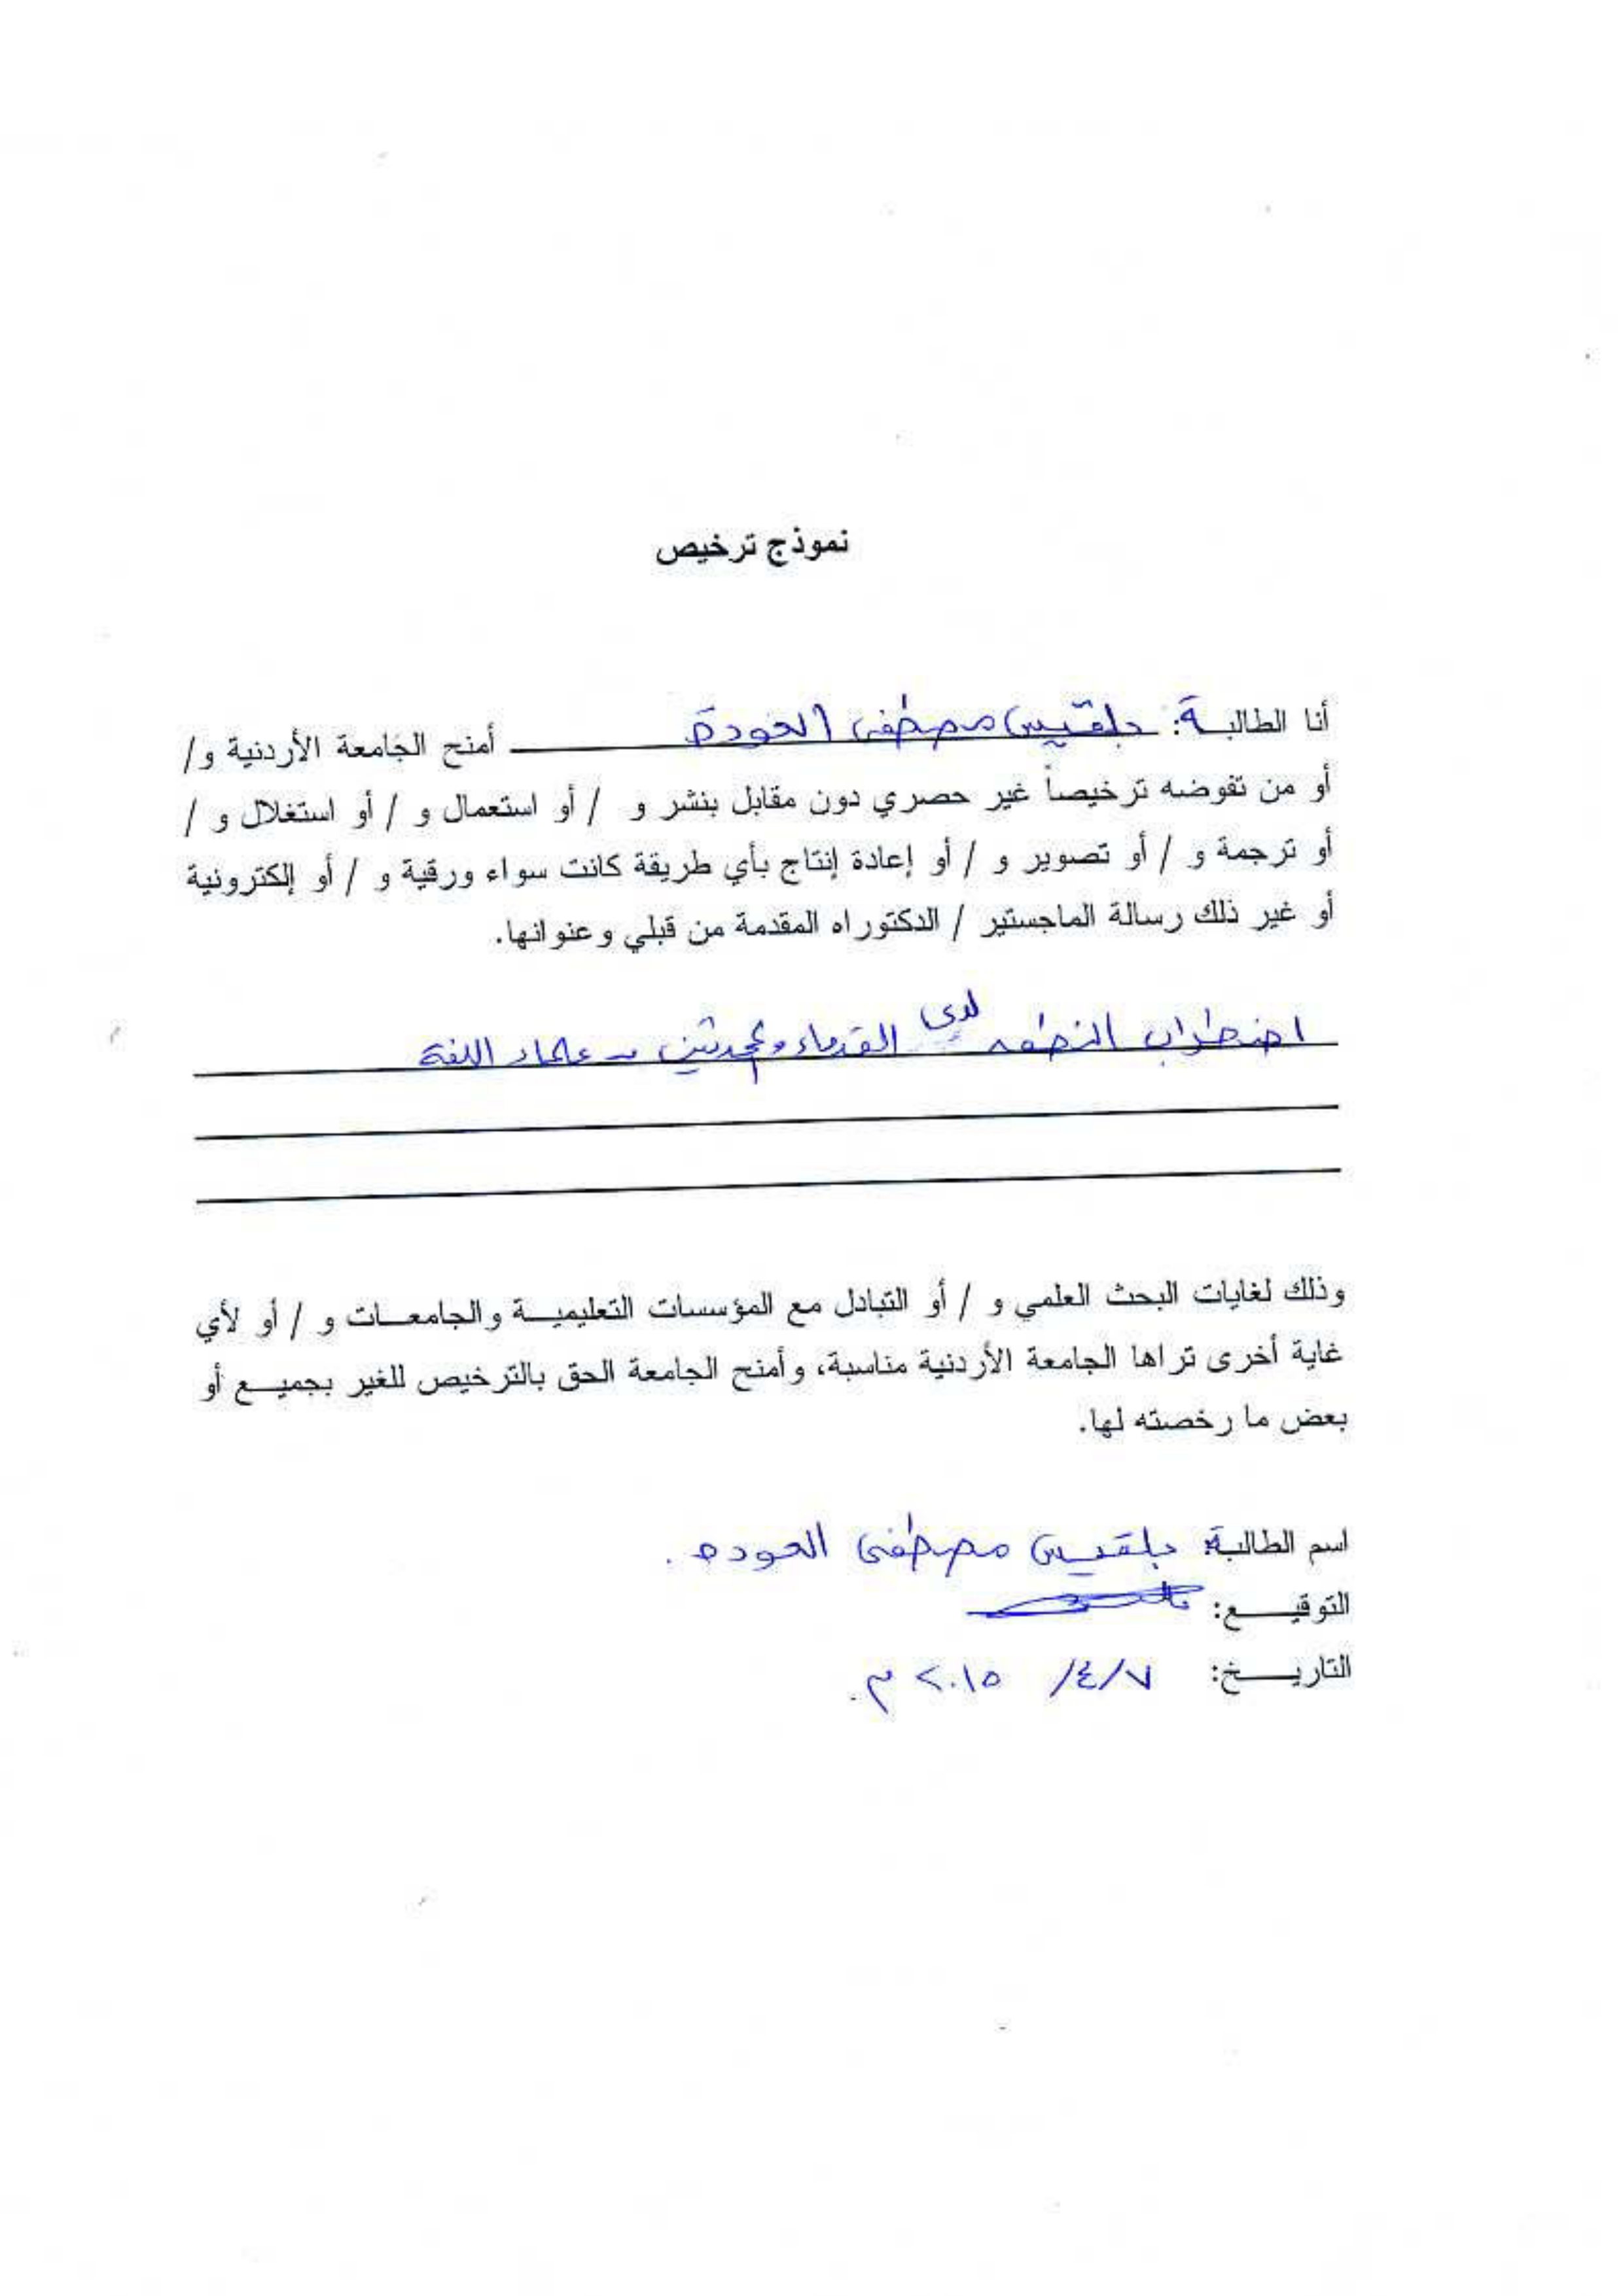 نموذج ترخيص
أنا الطالبة: بلقيس مصطفى العودة أمنح الجامعة الأردنية و/
أو من تفوضه ترخيصاً غير حصري دون مقابل بنشر و / أو استعمال و / أو استغلال و /
أو ترجمة و / أو تصوير و / أو إعادة إنتاج بأي طريقة كانت سواء ورقية و / أو إلكترونية
أو غير ذلك رسالة الماجستير / الدكتوراه المقدمة من قبلي وعنوانها.
اضطراب النطق لدى القدماء والمحدثين من علماء اللغة
وذلك لغايات البحث العلمي و / أو التبادل مع المؤسسات التعليمية والجامعات و / أو لأي
غاية أخرى تراها الجامعة الأردنية مناسبة، وأمنح الجامعة الحق بالترخيص للغير بجميع أو
بعض ما رخصته لها.
اسم الطالبة: بلقيس مصطفى العوده.
التوقيع:
التاريخ: ٧/٤/ ٢٠١٥ م.